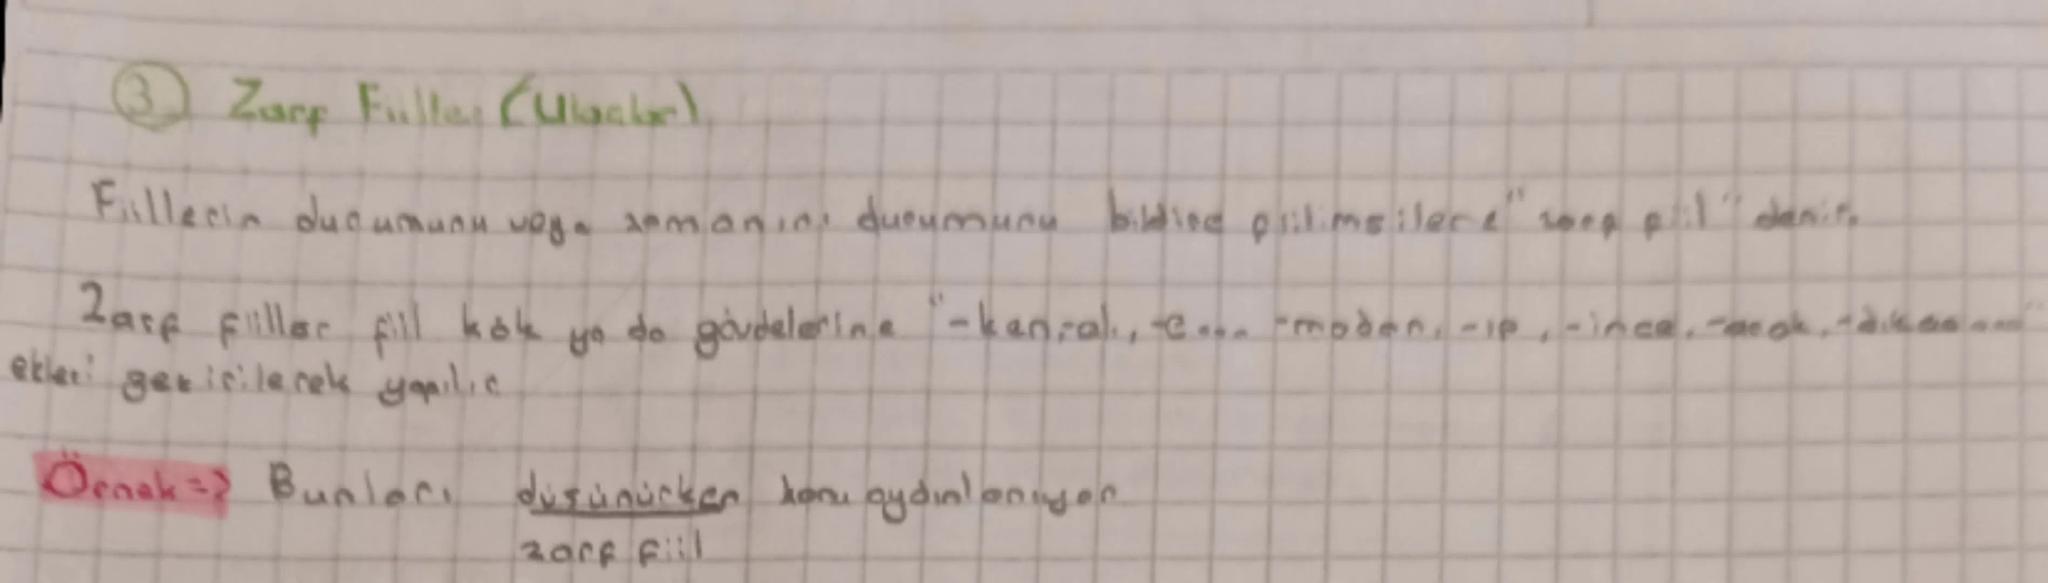 ③ Zarf Fiiller (Ulaçlar)
Fiillerin durumunu veya zamanını durumunu bildiren fiilimsilere "zarf fiil" denir.
Zarf fiiller fiil kök ya da gövdelerine "-ken, -alı, -madan, -ıp, -ince, -arak,
ekleri getirilerek yapılır
Örnek => Bunları düşünürken hava aydınlanıyor
zarf fiil